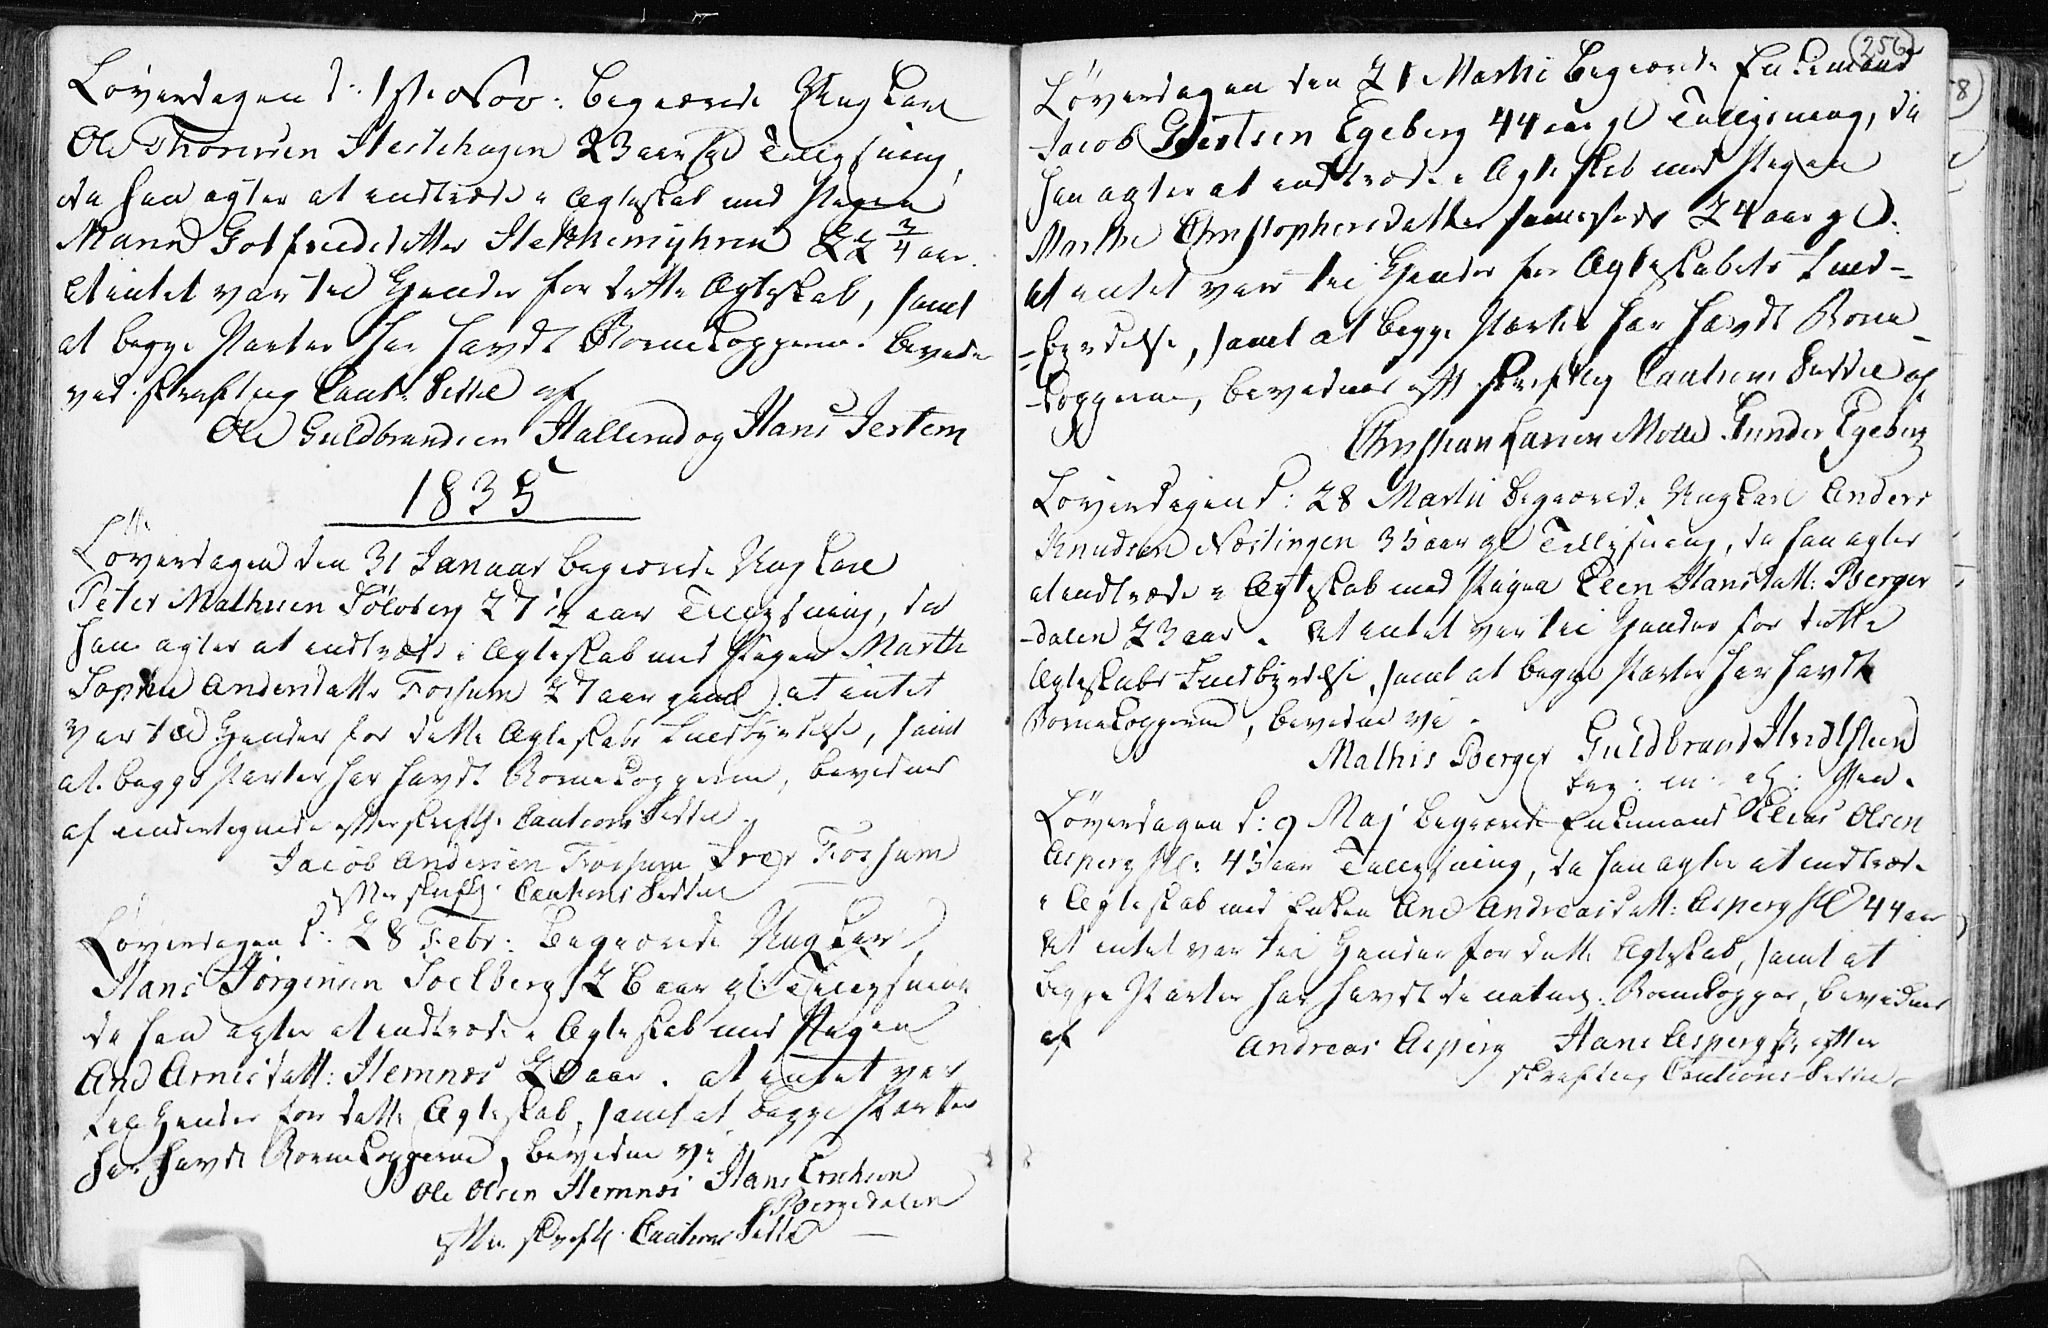 Løverdagen d: 1ste Nov: begiærede Ung Karl
Ole Thoresen Hestehagen 23 aar gl Tillysning,
da han agter at indtræde i Ægteskab med Pigen
Maren Gotfriedsdatter 22 3/4 aar.
At intet var til Hinder for dette Ægteskab, samt
at begge Parter har havdt Børnekopperne bevidnes
ved skriftlig Caut: Seddel af
Ole Guldbrandsen Hallerud og Hans Jertem
1835
Løverdagen den 31 Januar begiærede Ung Karl
Peter Mathisen Sølvberg 27 1/2 aar Tillysning, da
han agter at indtræde i Ægteskab med Pigen Marthe
Sophie Andersdatter Fossum 27 aar gaml. at intet
var til Hinder for dette Ægteskabs Fuldbyrdelse, samt
at begge Parter har havdt Børnekopperne, bevidnes
af undertegnede efter skriftl: Cautions Seddel.
Jacob Andersen Fossum Iver Fossum
efter skriftl: Cautions Seddel
Løverdagen d: 28 Febr: begiærede Ung Karl
Hans Jørgensen Soelberg 26 aar gl: Tillysning
da han agter at indtræde i Ægteskab med Pigen
Ane Arnesdatt: Hemnæs 20 aar. at intet var
til Hinder for dette Ægteskab, samt at begge Parter
har havdt Børnekopperne, bevidne vi
Ole Olsen Hemnæs Hans Erichsen
Bergsdalen
efter skriftl: Cautions Seddel
256
Løverdagen den 21 Martii begiærede Enkemand
Jacob Giertsen Egeberg 44 aar gl Tillysning, da
han agter at indtræde i Ægteskab med Pigen
Marthe Christophersdatter sammesteds 24 aar gl.
at intet var til Hinder for Ægteskabets Fuld-
-byrdelse, samt at begge Parter har havdt Børne-
-kopperne, bevidnes eft: skriftlig Cautions Seddel af
Christian Larsen Molle. Gunder Egeberg
Løverdagen d: 28 Martii begiærede Ung Karl Anders
Knudsen Næstingen 35 aar gl Tillysning, da han agter
at indtræde i Ægteskab med Pigen Leen Hansdatt: Berger
-dalen 23 aar. At intet var til Hinder for dette
Ægteskabs Fuldbyrdelse, samt at begge Parter har havdt
Børnekopperne, bevidne vi.
Mathis Berger Guldbrand Hvidsteen
Løverdagen d: 9 Maj begiærede Enkemand Elias Olsen
Asperg 45 aar Tillysning, da han agter at indtræde
i Ægteskab med Enken Ane Andreasdatt: Asperg 44 aar
At intet var til Hinder for dette Ægteskab, samt at
begge Parter har havdt de naturl: Børnekopper, bevidnes
af Andreas Asperg Hans Asperg efter
skriftlig Cautions Seddel